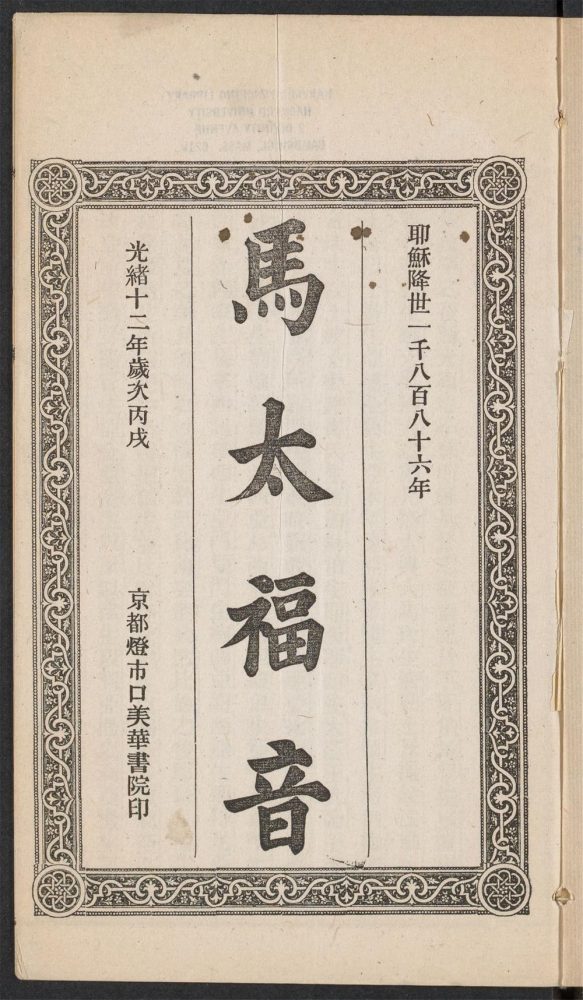 耶穌降世一千八百八十六年
馬太福音
光緒十二年歲次丙戌
京都燈市口美華書院印